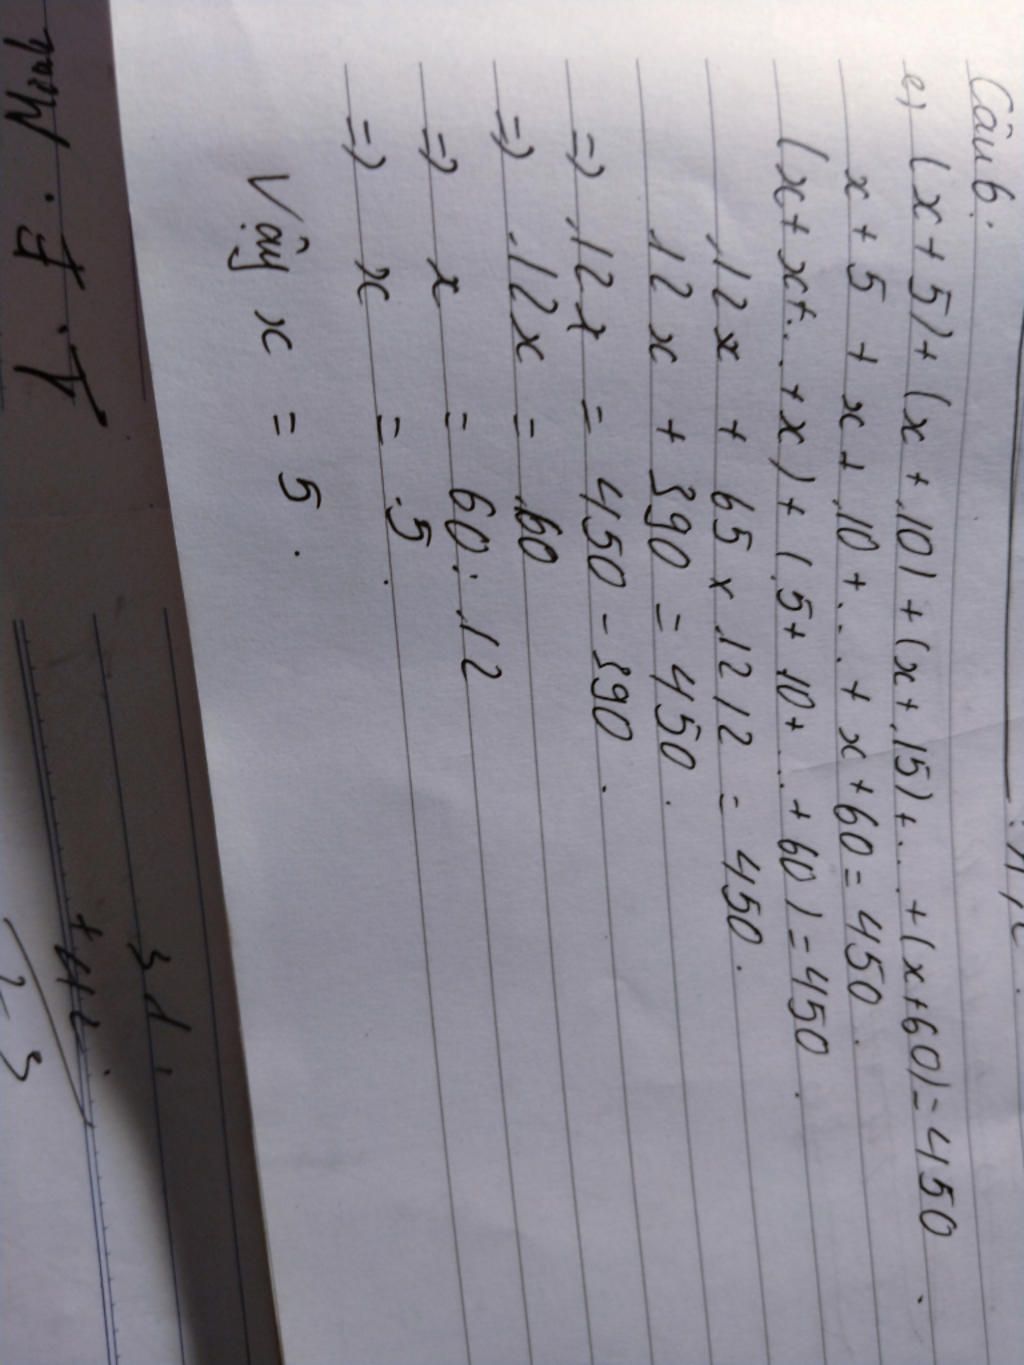 Câu 6:
e) (x + 5) + (x + 10) + (x + 15) + ... + (x + 60) = 450.
x + 5 + x + 10 + ... + x + 60 = 450.
(x + x + ... + x) + (5 + 10 + ... + 60) = 450.
12x + 65 x 12 12 = 450.
12x + 390 = 450.
=> 12x = 450 - 390.
=> 12x = 60
=> x = 60 : 12
=> x = 5.
Vậy x = 5.